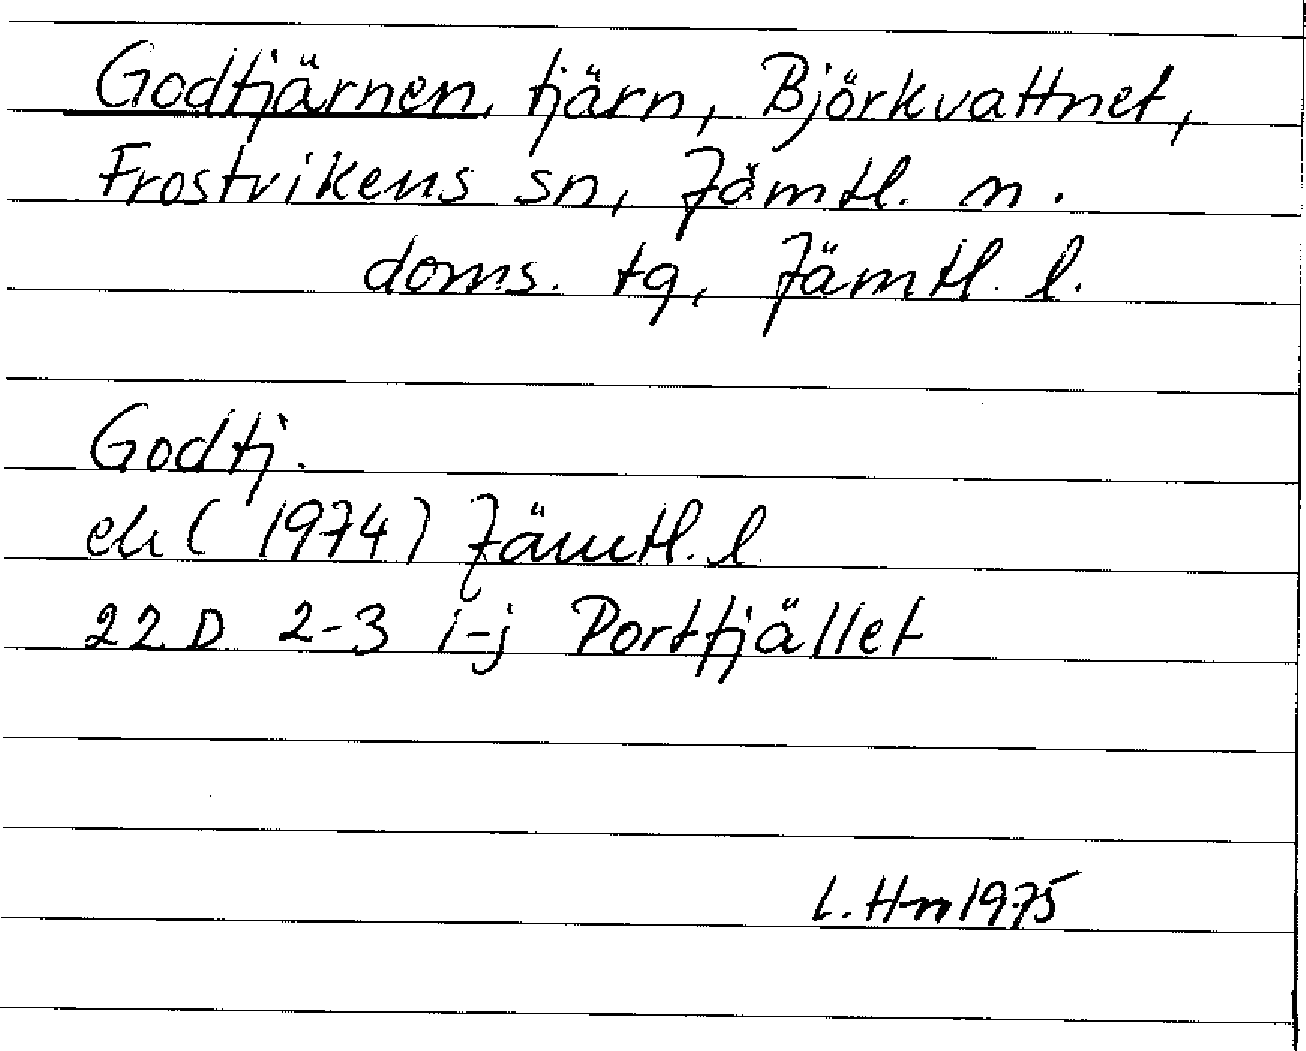 Godtjärnen, tjärn, Björkvattnet,
Frostvikens sn, Jämtl. n.
doms. tg, Jämtl. l.
Godtj.
ek (1974) Jämtl. l
22 D 2-3 i-j Portfjället
L. H-n 1975